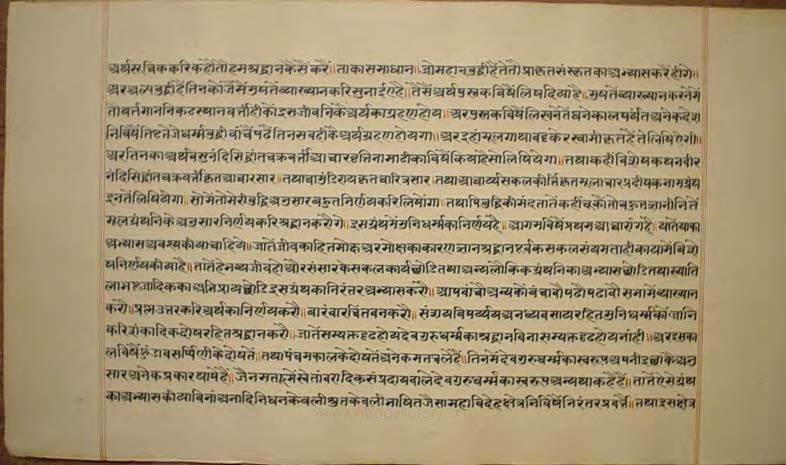 अर्थसबिककरिकहौतौहमश्रद्धानकैसैंकरैं॥ ताकासमाधान॥ जोमहानबुद्धीहैंतेतौप्राकृतसंस्कृतकाअभ्यासकरैंहीगे॥
अरअल्पबुद्धीहैंतिनकोंजैंसैंमुषतैंव्याख्यानकरिसुनाईएहैं॥ तैसैंअर्थपुस्तकविषैंलिषदियाहैं॥ मुषतैंव्याख्यानकरनेमैं
तौवर्तमाननिकटस्थानवर्त्तीहीकोंइसजीवनिकैंअर्थकाग्रहणहोय॥ अरपुस्तकविषैंलिखनेतैंघनेकालपर्यंतअनेकदेश
निविषैंतिष्टतेजेधर्म्मबुद्धीवांचैंपढैंतिनसबहीकैंअर्थग्रहणहोयगा॥ अरइहांमूलगाथावट्टकेरस्वामीकृतहैंतेलिषिएगी॥
अरतिनकाअर्थबसुनंदिसिद्धांतचक्रवर्त्तीआचारवृत्तिनामाटीकाविषैंकियाहैसोलिषियेगा॥ तथाकहींविशेषकथनवीर
नंदिसिद्धांतचक्रवर्त्तीकृतआचारसार॥ तथाचामुंडरायकृतचारित्रसार॥ तथाआचार्य्यसकलकीर्त्तिकृतमूलाचारप्रदीपकनामग्रंथ
इनतैंलिषियेगा॥ सोमैंतोमेरीबुद्धिअनुसारबहुतनिर्णयकरिलिषोंगा॥ तथापिबुद्धिकीमंदतातैंकहींचूकौंतौबहुतज्ञानीनितैं
मूलग्रंथनिकैअनुसारनिर्णयकरिश्रद्धानकरौगे॥ इसग्रंथमैंमुनिधर्म्मकानिर्णयहै॥ आगमविषैंप्रथमआचारांगहै॥ यातैंयाका
अभ्यासअवश्यकीयाचाहिये॥ जातैंजीवकाहितमोक्षअरमोक्षकाकारणज्ञानश्रद्धानपूर्वकसकलसंयमताहीकायामैंविशे
षनिर्णयकीयाहै॥ तातैंहेभव्यजीवहोऔरसंसारकेसकलकार्यछोडितथाअन्यलौकिकग्रंथनिकाअभ्यासछोडितथाख्याति
लाभपूजादिककाअभिप्रायछोडिइसग्रंथकानिरंतरअभ्यासकरौ॥ आपवांचौअन्यकोंवंचावौपढौपढावौसभामेंव्याख्यान
करौ॥ प्रश्नउत्तरकरिअर्थकानिर्णयकरौ॥ बारंबारचिंतवनकरौ॥ संशयविपर्य्ययअनध्यवसायरहितमुनिधर्म्मकोंजानि
करिशंकादिकदोषरहितश्रद्धानकरौ॥ जातैंसम्यक्तदृढहोयदेवगुरुधर्म्मकाश्रद्धानबिनासम्यक्तदृढहोयनांही॥ अरइसका
लविषैंहुंडावसर्प्पिणीकेदोषतैं॥ तथापंचमकालकेदोषतैंअनेकमतचलेहैं॥ तिनमेंदेवगुरुधर्म्मकास्वरूपअपनीइछाकैअनु
सारअनेकप्रकारथापेहैं॥ जैनमतहूमेंस्वेतांबरादिकसंप्रदायवालेदेवगुरुधर्म्मकास्वरूपअन्यथाकहैहैं॥ तातैंऐसेग्रंथ
काअभ्यासकीयाबिनांअनादिनिधनकेवलीश्रुतकेवलीभाषितजैसामहाविदेहक्षेत्रनिविषैंनिरंतरप्रवर्त्तै॥ तथाइसक्षेत्र